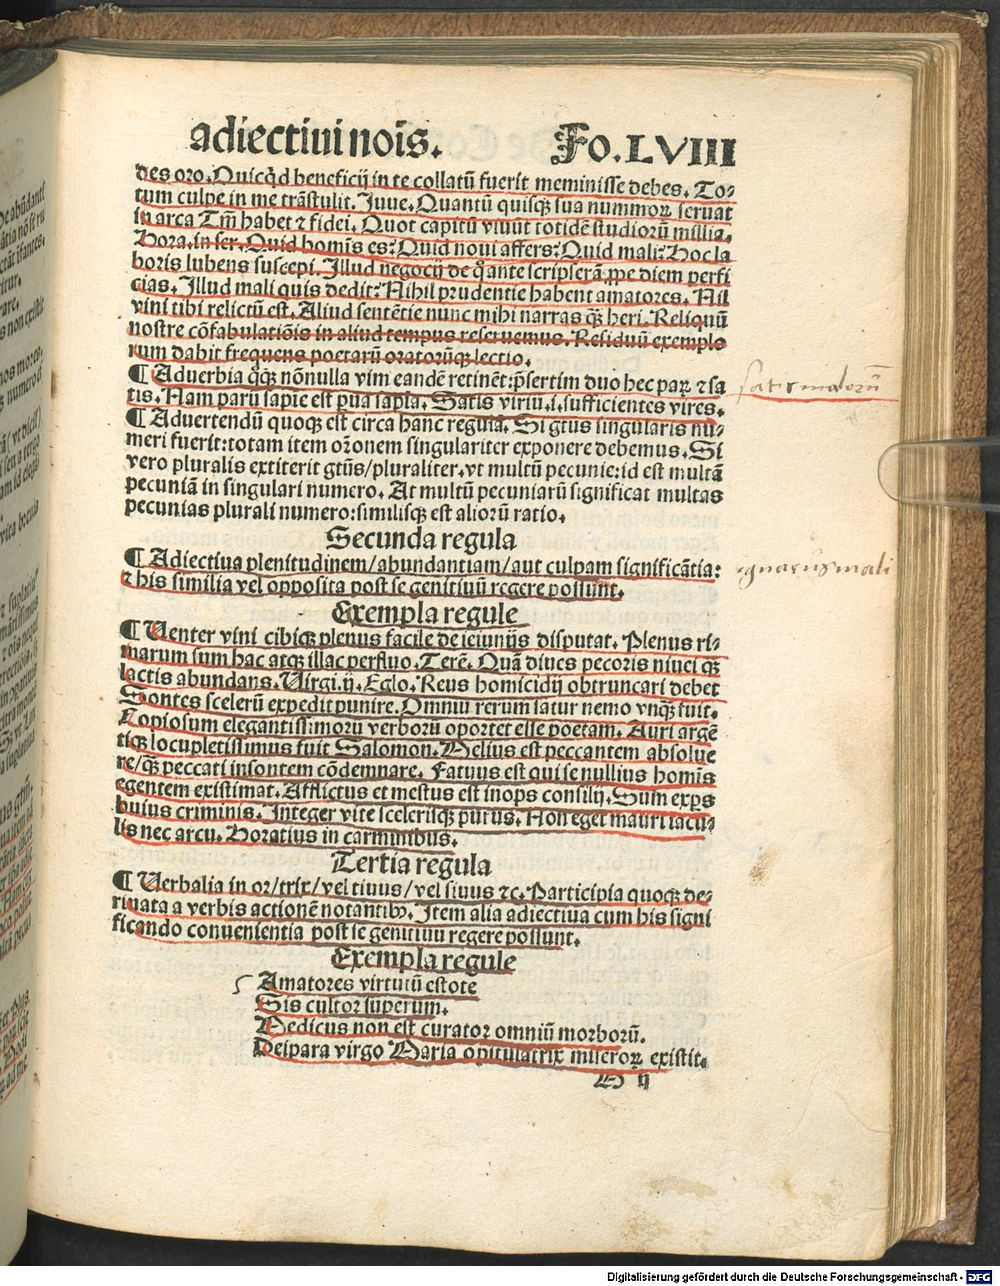 adiectiui noīs.
Fo. LVIII
des oro. Quicq̇d beneficij in te collatū fuerit meminisse debes. To-
tum culpe in me trāstulit. Juue. Quantū quisqꝫ sua nummoꝝ seruat
in arca Tm̄ habet ⁊ fidei. Quot capitū viuūt totidē studiorū millia.
Hora. in ser. Quid homīs es: Quid noui affers: Quid mali: Hoc la
boris lubens suscepi. Illud negocij de q̊ ante scripserā ꝓpe diem perfi
cias. Illud mali quis dedit: Nihil prudentie habent amatores. Nil
vini tibi relictū est. Aliud sentētie nunc mihi narras qꝫ̄ heri. Reliquū
nostre cōfabulatiōis in aliud tempus reseruemus. Residuū exemplo
rum dabit frequens poetarū oratorūqꝫ lectio.
¶ Aduerbia q̊qꝫ nōnulla vim eandē retinēt: p̄sertim duo hec paꝝ ⁊ sa
tis. Nam parū sapie est ꝑua sapīa. Satis viriū .i. sufficientes vires.
¶ Aduertendū quoqꝫ est circa hanc regulā. Si gtūs singularis nu-
meri fuerit: totam item orōnem singulariter exponere debemus. Si
vero pluralis extiterit gtūs/pluraliter. vt multū pecunie: id est multā
pecuniā in singulari numero. At multū pecuniarū significat multas
pecunias plurali numero: similisqꝫ est aliorū ratio.
Secunda regula
¶ Adiectiua plenitudinem/abundantiam/aut culpam significātia:
⁊ his similia vel opposita post se genitiuū regere possunt.
Exempla regule
¶ Uenter vini cibiqꝫ plenus facile de ieiunijs disputat. Plenus ri-
marum sum hac atqꝫ illac perfluo. Terē. Quā diues pecoris niuei qꝫ
lactis abundans. Uirgi. ij. Eglo. Reus homicidij obtruncari debet
Sontes scelerū expedit punire. Omniū rerum satur nemo vnqꝫ̄ fuit.
Copiosum elegantissimorū verborū oportet esse poetam. Auri argē
tiqꝫ locupletissimus fuit Salomon. Melius est peccantem absolue
re/qꝫ̄ peccati insontem cōdemnare. Fatuus est qui se nullius homīs
egentem existimat. Afflictus et mestus est inops consilij. Sum exꝑs
huius criminis. Integer vite scelerisqꝫ purus. Non eget mauri iacu
lis nec arcu. Horatius in carminibus.
Tertia regula
¶ Uerbalia in or/trix/vel tiuus/vel siuus ⁊c. Participia quoqꝫ de-
riuata a verbis actionē notantibꝰ. Item alia adiectiua cum his signi
ficando conuenientia post se genitiuū regere possunt.
Exempla regule
Amatores virtutū estote
Sis cultor superum.
Medicus non est curator omniū morborū.
Deipara virgo Maria opitulatrix miseroꝝ existit.
ij
ignarus mali
Digitalisierung gefördert durch die Deutsche Forschungsgemeinschaft - DFG